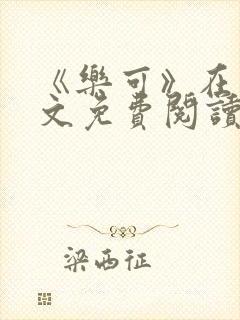 《樂可》在
文免費閱讀
梁西征